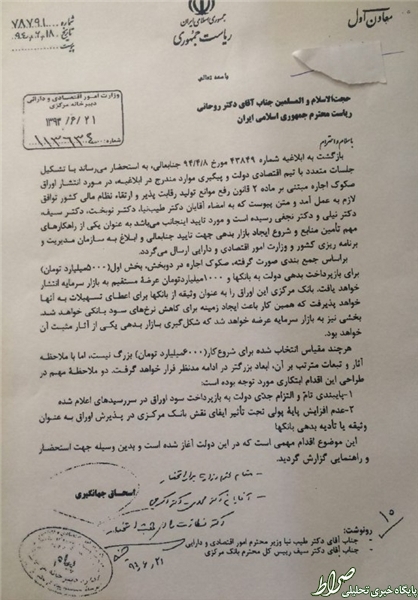 معاون اول
جمهوری اسلامی ایران
ریاست جمهوری
شماره ۷۸۷۹۱
تاریخ ۹۴،۶،۱۸
پیوست
باسمه تعالی
وزارت امور اقتصادی و دارائی
دبیرخانه مرکزی
۱۳۹۴/۶/۲۱
شماره
حجت‌الاسلام و المسلمین جناب آقای دکتر روحانی
ریاست محترم جمهوری اسلامی ایران
با سلام و احترام
بازگشت به ابلاغیه شماره ۴۳۸۴۹ مورخ ۹۴/۴/۸ جنابعالی، به استحضار می‌رساند با تشکیل
جلسات متعدد با تیم اقتصادی دولت و پیگیری موارد مندرج در ابلاغیه، در مورد انتشار اوراق
صکوک اجاره مبتنی بر ماده ۲ قانون رفع موانع تولید رقابت پذیر و ارتقاء نظام مالی کشور توافق
لازم به عمل آمد و متن پیوست که به امضاء آقایان دکتر طیب‌نیا، دکتر نوبخت، دکتر سیف،
دکتر نیلی و دکتر نجفی رسیده است و مورد تایید اینجانب می‌باشد به عنوان یکی از راهکارهای
مهم تأمین منابع و شروع ایجاد بازار بدهی جهت تایید جنابعالی و ابلاغ به سازمان مدیریت و
برنامه ریزی کشور و وزارت امور اقتصادی و دارایی ارسال می‌گردد.
براساس جمع بندی صورت گرفته، صکوک اجاره در دوبخش، بخش اول (۵۰۰۰میلیارد تومان)
برای بازپرداخت بدهی دولت به بانکها و ۱۰۰۰میلیاردتومان عرضه مستقیم به بازار سرمایه انتشار
خواهد یافت. بانک مرکزی این اوراق را به عنوان وثیقه از بانکها برای اعطای تسهیلات به آنها
خواهد پذیرفت که همین کار باعث ایجاد زمینه برای کاهش نرخ‌های سود بانکی خواهد شد.
بخشی نیز به بازار سرمایه عرضه خواهد شد که شکل‌گیری بازار بدهی یکی از آثار مثبت آن
خواهد بود.
هرچند مقیاس انتخاب شده برای شروع کار (۶۰۰۰میلیارد تومان) بزرگ نیست، اما با ملاحظه
آثار و تبعات مترتب بر آن، ابعاد بزرگتر در ادامه مدنظر قرار خواهد گرفت. دو ملاحظه مهم در
طراحی این اقدام ابتکاری مورد توجه بوده است:
۱-پایبندی تام و التزام جدّی دولت به بازپرداخت سود اوراق در سررسیدهای اعلام شده
۲-عدم افزایش پایه پولی تحت تأثیر ایفای نقش بانک مرکزی در پذیرش اوراق به عنوان
وثیقه یا تأدیه بدهی بانکها
این موضوع اقدام مهمی است که در این دولت آغاز شده است و بدین وسیله جهت استحضار
و راهنمایی گزارش گردید.
اسحاق جهانگیری
۹۴،۶،۲۱
رونوشت:
جناب آقای دکتر طیب نیا وزیر محترم امور اقتصادی و دارایی
جناب آقای دکتر سیف رییس کل محترم بانک مرکزی
صراط
پایگاه خبری تحلیلی